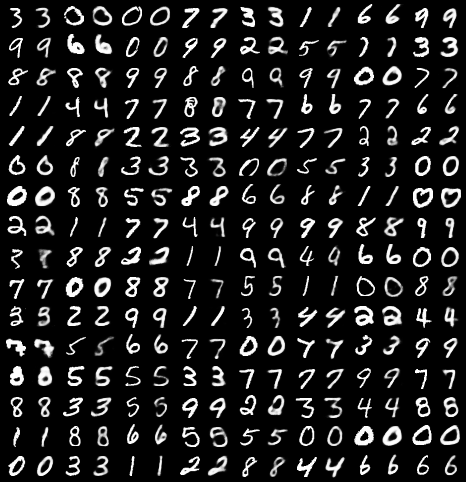 3 3 0 0 0 0 7 7 3 3 1 1 6 6 9 9
9 9 6 6 0 0 9 9 2 2 5 5 1 1 3 3
8 8 8 8 9 9 8 8 9 9 9 9 0 0 7 7
1 1 4 4 7 7 8 8 7 7 6 6 7 7 6 6
1 1 8 8 2 2 3 3 4 4 7 7 2 2 2 2
0 0 8 8 3 3 3 3 0 0 5 5 3 3 0 0
0 0 8 8 5 5 8 8 6 6 8 8 1 1 0 0
2 2 1 1 7 7 4 4 9 9 9 9 8 8 9 9
3 8 8 2 2 1 1 9 9 4 9 6 6 0 0
7 7 0 0 8 8 7 7 5 5 1 1 0 0 8 8
3 3 2 2 9 9 1 1 3 3 4 4 2 2 4 4
7 7 5 5 6 6 7 7 0 0 7 7 3 3 9 9
8 8 5 5 5 5 3 3 7 7 7 7 9 9 7 7
8 8 3 3 5 5 9 9 2 2 3 3 4 4 8 8
1 1 8 8 6 6 5 5 5 5 0 0 0 0 0 0
0 0 3 3 1 1 2 2 8 8 4 4 6 6 6 6